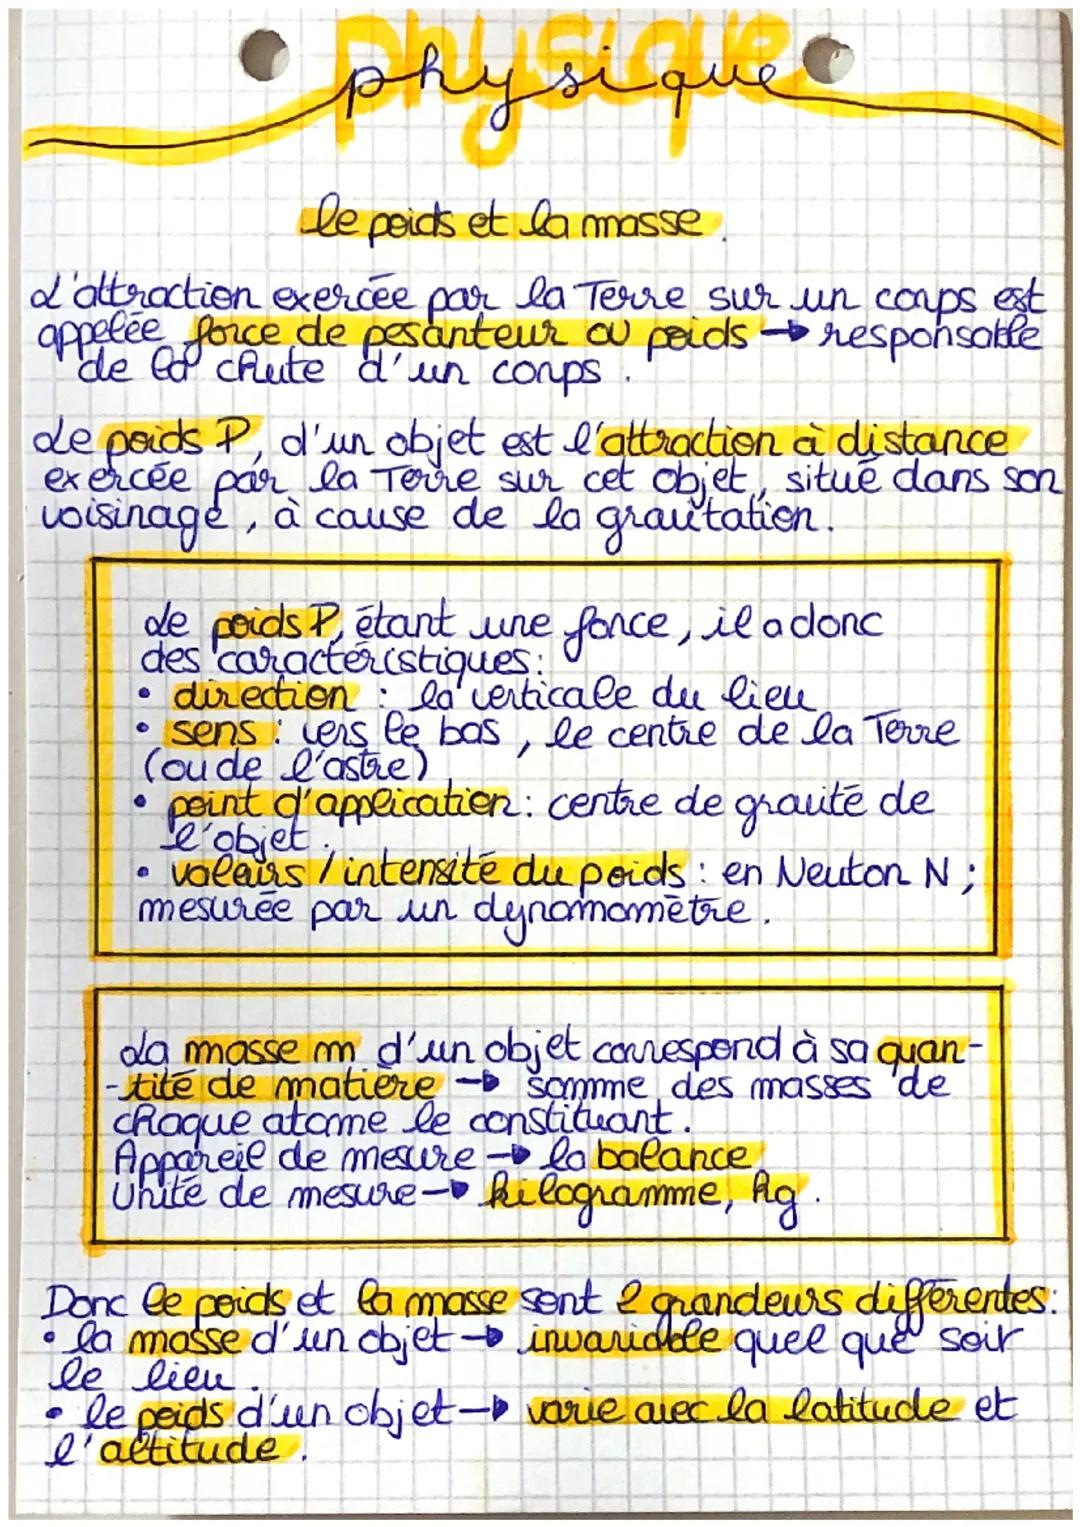 physique
le poids et la masse.
L'attraction exercée par la Terre sur un corps est
appelée force de pesanteur ou poids → responsable
de la chute d'un corps.
Le poids P, d'un objet est l'attraction à distance
exercée par la Terre sur cet objet, situé dans son
voisinage, à cause de la gravitation.
Le poids P, étant une force, il a donc
des caractéristiques:
• direction : la verticale du lieu
• sens : vers le bas, le centre de la Terre
(ou de l'astre)
• point d'application : centre de gravité de
l'objet.
• valeurs / intensité du poids : en Neuton N ;
mesurée par un dynamomètre.
La masse m d'un objet correspond à sa quan-
-tité de matière → somme des masses de
chaque atome le constituant.
Appareil de mesure → la balance
Unité de mesure → kilogramme, kg.
Donc le poids et la masse sont 2 grandeurs différentes:
• la masse d'un objet → invariable quel que soit
le lieu.
• le poids d'un objet → varie avec la latitude et
l'altitude.